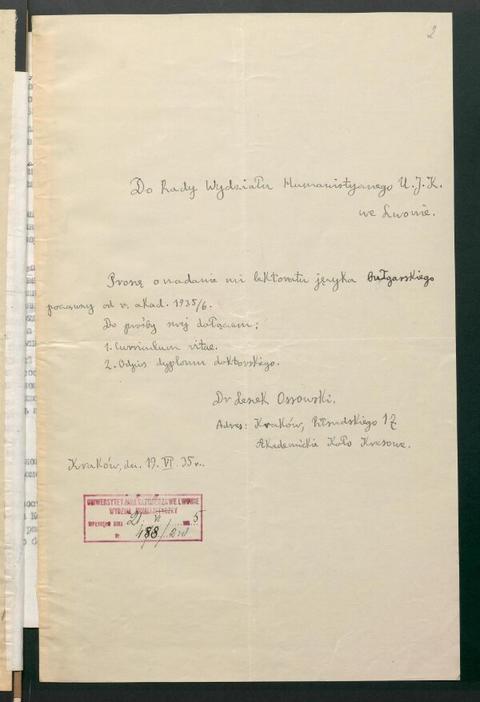 2
Do Rady Wydziału Humanistycznego U. J. K.
we Lwowie.
Proszę o nadanie mi lektoratu języka bułgarskiego
począwszy od r. akad. 1935/6.
Do prośby mej dołączam:
1. Curriculum vitae.
2. Odpis dyplomu doktorskiego.
Dr Leszek Ossowski.
Adres: Kraków, Piłsudskiego 17
Akademickie Koło Kresowe.
Kraków, dn. 19. VI. 35 r.
UNIWERSYTET JANA KAZIMIERZA WE LWOWIE
WYDZIAŁ HUMANISTYCZNY
WPŁYNĘŁO DNIA 21. VI 5